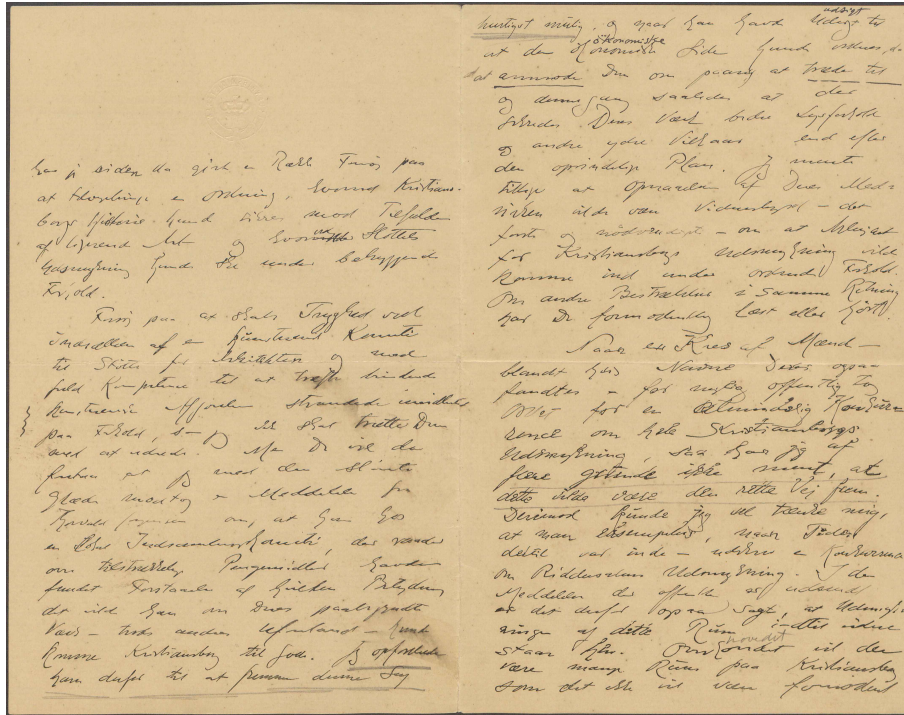 har jeg siden da gjort en Række Forsøg paa
at tilvejebringe en Ordning, hvorved Kristians-
borgs Historie kunde sikres mod Tilfælde
af lignende Art og hvorved Slottets
Udsmykning kunde ske under betryggende
Forhold.
Forsøg paa at skabe Tryghed ved
Indsættelsen af en kunstnerisk Komité
til Støtte for Arkitekten og med
fuld Kompetence til at træffe bindende
kunstneriske Afgørelser strandede imidlertid
paa Forhold, som jeg ikke skal trætte Dem
med at udrede. Men De vil da
forstaa at jeg med den største
Glæde modtog en Meddelelse fra
Harald om, at han hos
en Indsamlingskomité, der raader
om tilstrækkelige Pengemidler havde
fundet Forstaaelse af hvilken Betydning
det vilde have om Deres paabegyndte
Værk – trods andres – kunde
komme Kristiansborg til gode. Jeg opfordrede
ham derfor til at fremme denne Sag
hurtigst mulig, og naar han havde Udsigt til udsigt
at den økonomiske økonomiske Side kunde ordnes, da
at anmode Dem om paany at træde til
og denne Gang saaledes at der
sikredes Deres Værk bedre Lysforhold
og andre ydre Vilkaar end efter
den oprindelige Plan. Jeg mente
tillige at Opnaaelsen af Deres Med-
virken vilde være Vidnesbyrd – det
første og nødvendigste – om at Arbejdet
for Kristiansborgs Udsmykning vilde
komme ind under ordnede Forhold.
Om andre Bestræbelser i samme Retning
har De formodentlig læst eller hørt.
Naar en Kres af Mænd –
blandt hvis Navne Deres ogsaa
fandtes – for nylig offentlig tog
Ordet for en almindelig Konkur-
rence om hele Kristiansborgs
Udsmykning, saa har jeg af
flere Grunde ikke ment, at
dette vilde være den rette Vej frem.
Derimod kunde jeg vel tænke mig,
at man eksempelvis, naar Tiden
dertil var inde – udskrev en Konkurrence
om Riddersalens Udsmykning. I den
Meddelelse der offentlig er udsendt
er det derfor ogsaa sagt, at Udsmyk-
ningen af dette Rum indtil videre
staar hen. hovedet vil der
være mange Rum paa Kristiansborg
som det ikke vil være